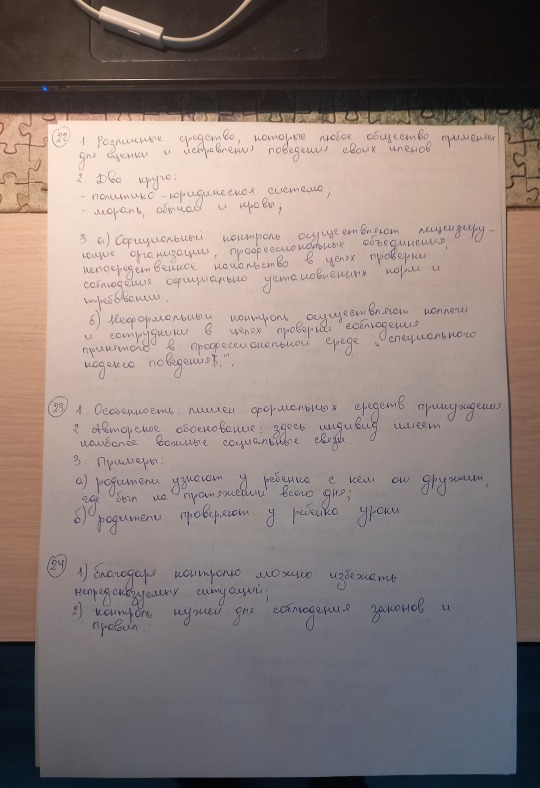 22
1. Различные средства, которые любое общество применяет
для оценки и исправления поведения своих членов
2. Два круга:
- политико-юридическая система;
- мораль, обычаи и нравы;
3. а) Официальный контроль осуществляют лицензиру-
ющие организации, профессиональные объединения,
непосредственное начальство в целях проверки
соблюдения официально установленных норм и
требований.
б) Неформальный контроль осуществляют коллеги
и сотрудники в целях проверки соблюдения
принятого в профессиональной среде „специального
кодекса поведения".
23
1. Особенность: лишен формальных средств принуждения
2. Авторское обоснование: здесь индивид имеет
наиболее важные социальные связи.
3. Примеры:
а) родители узнают у ребенка с кем он дружит,
где был на протяжении всего дня;
б) родители проверяют у ребенка уроки.
24
1) благодаря контролю можно избежать
непредсказуемых ситуаций;
2) контроль нужен для соблюдения законов и
правил.